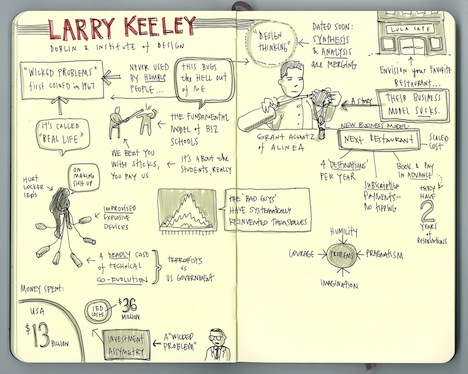 LARRY KEELEY
DOBLIN & INSTITUTE of DESIGN
"WICKED PROBLEMS"
first coined in 1967
NEVER USED
by HUMBLE
PEOPLE...
THIS BUGS
the HELL OUT
of ME
IT'S CALLED
"REAL LIFE"
WE BEAT YOU
WITH STICKS,
YOU PAY US
the FUNDAMENTAL
MODEL of BIZ
SCHOOLS
IT'S ABOUT the
STUDENTS REALLY
HURT
LOCKER
IEDS
OR
MAKING
SHIT UP
IMPROVISED
EXPLOSIVE
DEVICES
the "BAD GUYS"
HAVE SYSTEMATICALLY
REINVENTED THEMSELVES
A DEADLY CASE
of TECHNICAL
CO-EVOLUTION
TERRORISTS
vs
US GOVERNMENT
MONEY SPENT:
USA
$13
BILLION
IED
COSTS
$36
MILLION
INVESTMENT
ASSYMETRY
A "WICKED
PROBLEM"
"DESIGN
THINKING"
DATED SOON:
SYNTHESIS
& ANALYSIS
are MERGING
LULA CAFE
ENVISION your FAVORITE
RESTAURANT...
A story
THEIR BUSINESS
MODEL SUCKS.
GRANT ACHATZ
of ALINEA
NEW BUSINESS MODEL:
NEXT RESTAURANT
SCALED
COST
4 "DESTINATIONS"
PER YEAR
BOOK & PAY
IN ADVANCE
SUBSCRIPTION
PAYMENTS—
NO TIPPING
THEY
HAVE
2
YEARS
of RESERVATIONS
HUMILITY
COURAGE
PROBLEMS
PRAGMATISM
IMAGINATION